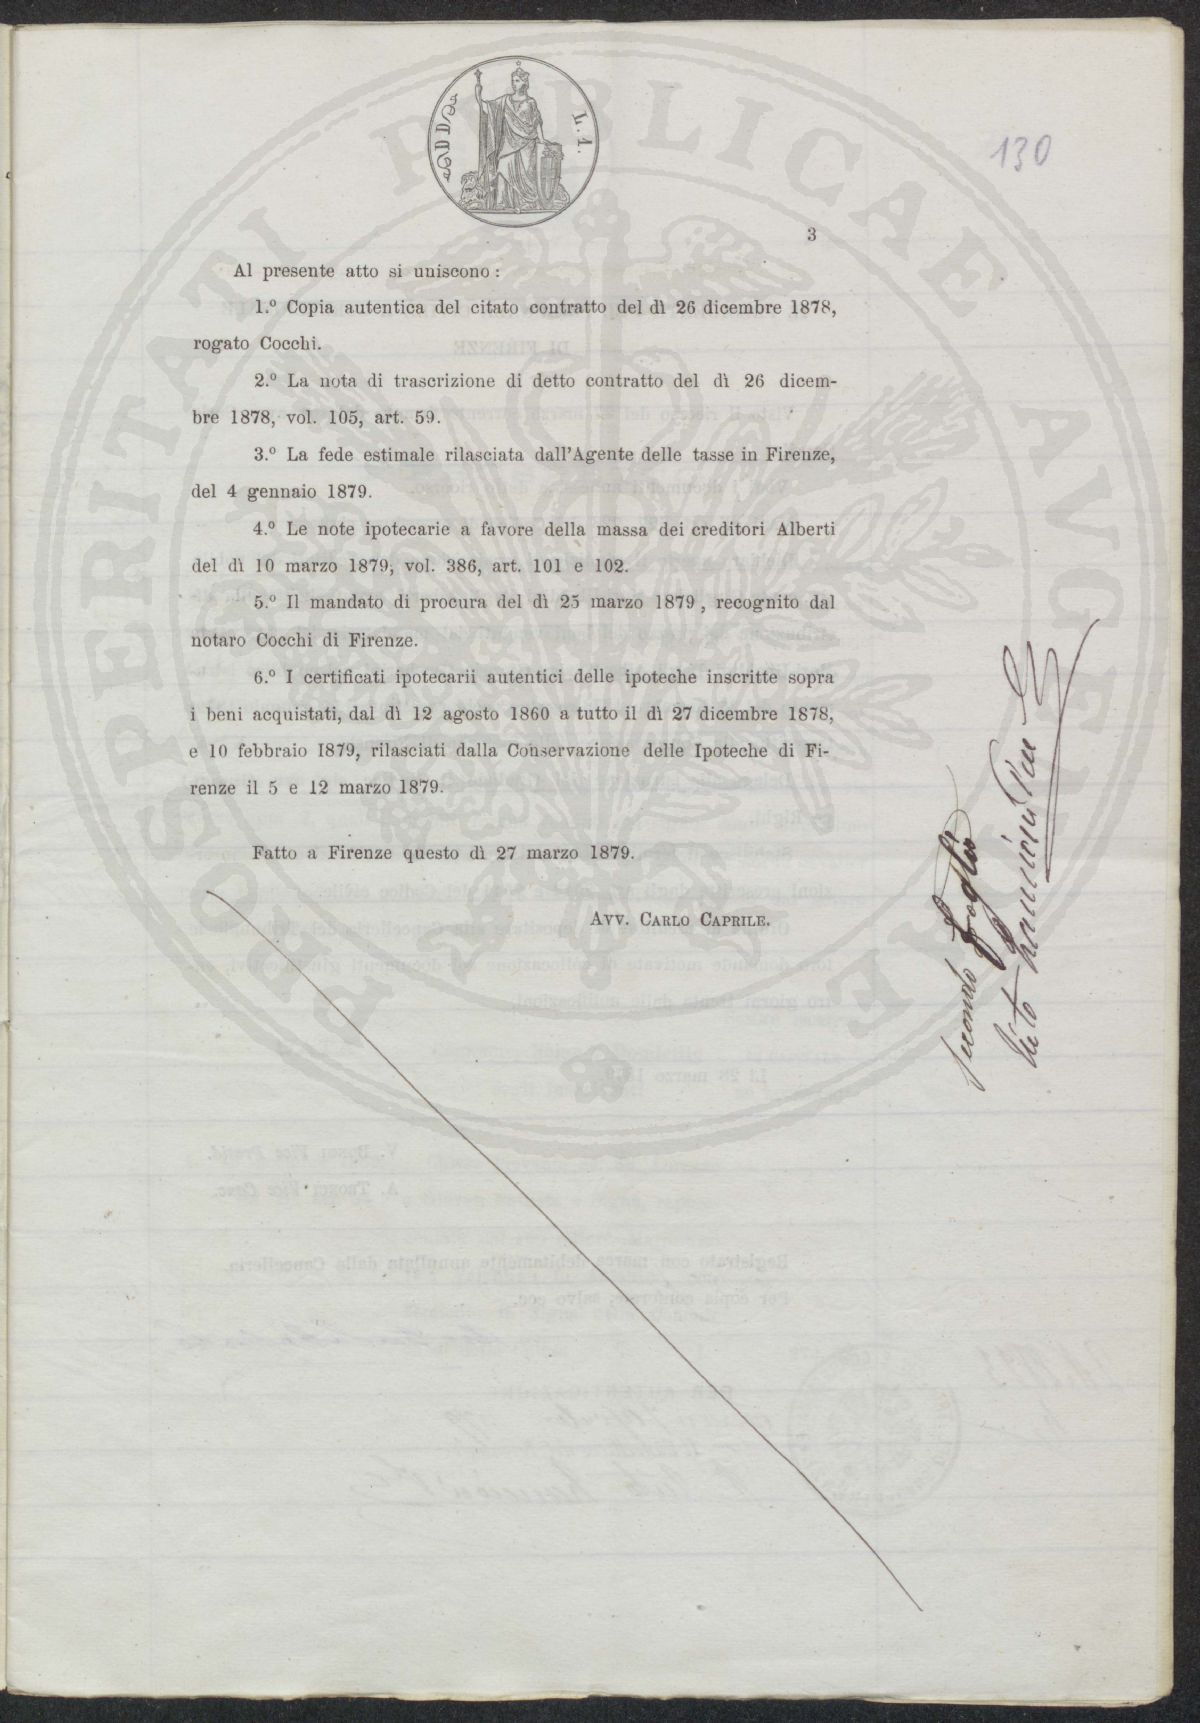 130
L. 1.
3
Al presente atto si uniscono:
1.º Copia autentica del citato contratto del dì 26 dicembre 1878,
rogato Cocchi.
2.º La nota di trascrizione di detto contratto del dì 26 dicem-
bre 1878, vol. 105, art. 59.
3.º La fede estimale rilasciata dall'Agente delle tasse in Firenze,
del 4 gennaio 1879.
4.º Le note ipotecarie a favore della massa dei creditori Alberti
del dì 10 marzo 1879, vol. 386, art. 101 e 102.
5.º Il mandato di procura del dì 25 marzo 1879, recognito dal
notaro Cocchi di Firenze.
6.º I certificati ipotecarii autentici delle ipoteche inscritte sopra
i beni acquistati, dal dì 12 agosto 1860 a tutto il dì 27 dicembre 1878,
e 10 febbraio 1879, rilasciati dalla Conservazione delle Ipoteche di Fi-
renze il 5 e 12 marzo 1879.
Fatto a Firenze questo dì 27 marzo 1879.
AVV. CARLO CAPRILE.
secondo foglio
PROSPERITATI PVBLICAE AVGENDAE